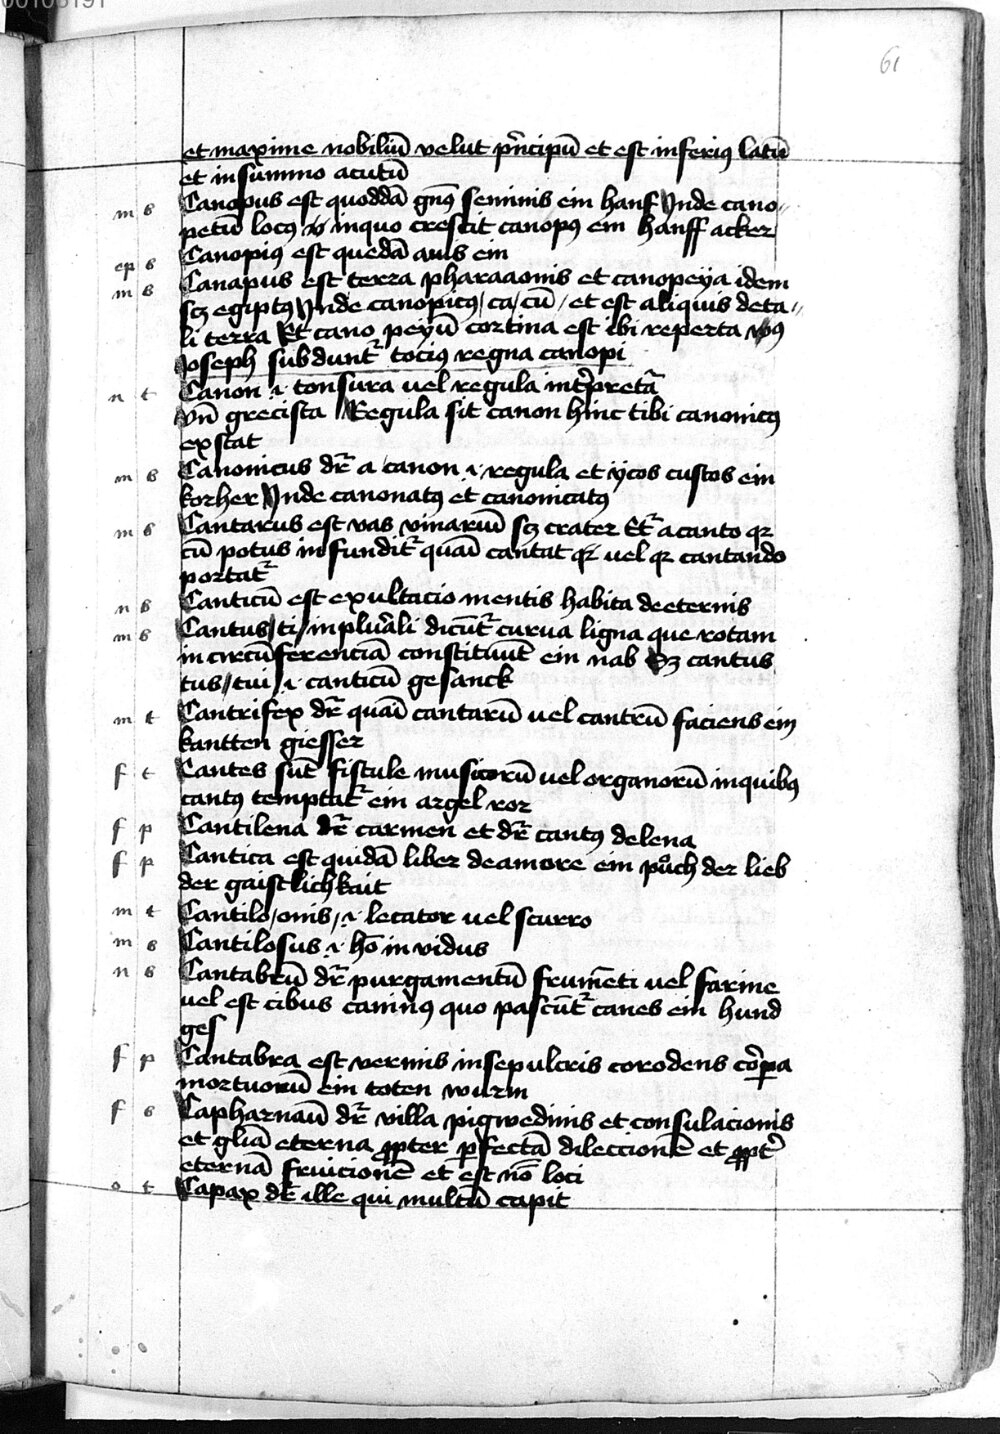 61
et maxime nobiliū velut p̄ncipū et est inferiꝯ latū
et in summo acutū
m s Canopus est quoddā gn̄s seminis ein hanf Jnde cano-
petū locꝯ inquo crescit canopꝯ ein hanff acker
ep s Canopiꝯ est quedā auis ein
m s Canapus est terra pharaaonis et canopeya idem
sꝫ egiptꝯ Jnde canopicꝯ / ca / cū / et est aliquis de ta-
li terra Et cano peyū cortina est ibi reperta
Joseph subdunt᷑ tociꝯ regna canopi
n t Canon .i. tonsura vel regula int̄pretat᷑
vn̄ grecista Regula sit canon hinc tibi canonicꝯ
exstat
m s Canonicus dr̄ a canon .i. regula et ycos custos ein
korher Jnde canonatꝯ et canonicatꝯ
m s Cantarus est vas vinariū sꝫ crater Et᷑ a canto qr
cū potus infundit᷑ quasi cantat qr vel qr cantando
portat᷑
n s Canticū est exultacio mentis habita de eternis
m s Cantus / ti / in plurali dicūt᷑ curua ligna que rotam
in circūferenciā constituūt ein nab Sꝫ cantus
tus / tui / .i. canticū gesanck
m t Cantrifex dr̄ quasi cantarū vel cantrū faciens ein
kantten giesser
f t Cantes sūt fistule musicorū vel organorū inquibꝯ
cantꝯ temptat᷑ ein argel ror
f p Cantilena dr̄ carmen et dr̄ cantꝯ de lena
f p Cantica est quidā liber de amore ein pu̇ch der lieb
der gaistlichkait
m t Cantilo / onis / .i. lecator vel scurro
m s Cantilosus .i. hō inuidus
n s Cantabrū dr̄ purgamentū frumēti vel farine
vel est cibus caninꝯ quo pascūt᷑ canes ein hund
ges
f p Cantabra est vermis in sepulcris corodens cor̄pa
mortuorū ein toten wurm
f s Capharnaū dr̄ villa pigwedinis et consulacionis
et gliā eterna ꝓpter ꝑfectā dileccionē et ꝓpt̄
eternā fruicionē et est nō loci
o t Capax dr̄ ille qui multū capit